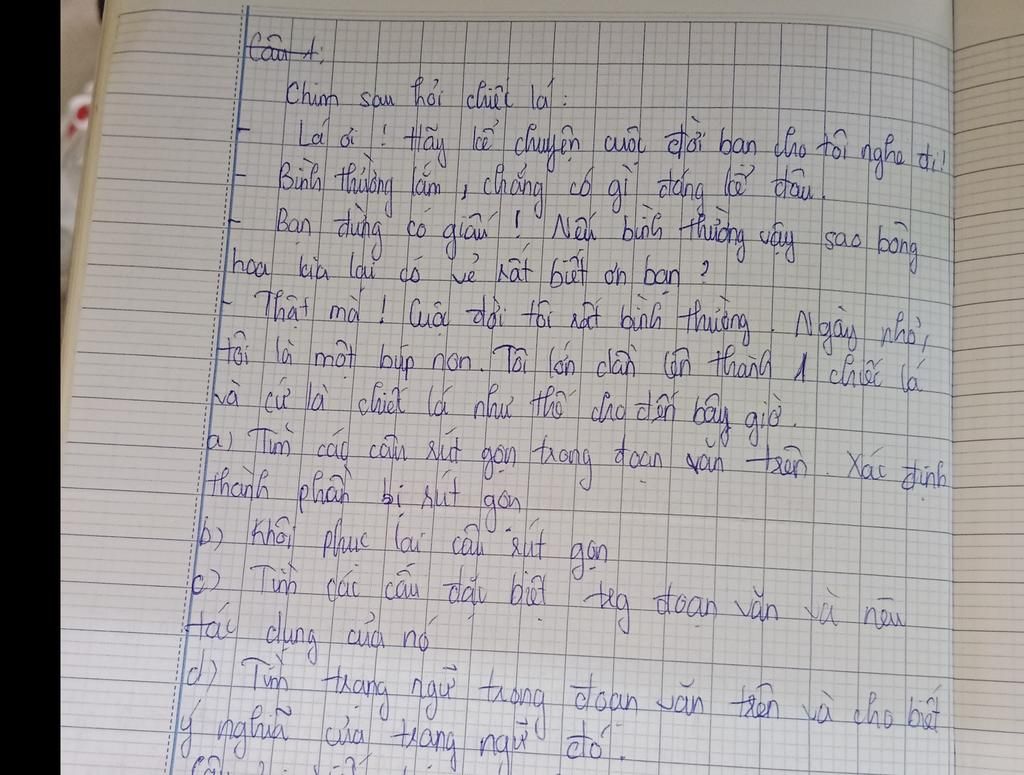 Câu 1:
Chim sau hỏi chiếc lá:
- Lá ơi! Hãy kể chuyện cuộc đời bạn cho tôi nghe đi!
- Bình thường lắm, chẳng có gì đáng kể đâu.
- Bạn đừng có giấu! Nếu bình thường vậy sao bông
hoa kia lại có vẻ rất biết ơn bạn?
- Thật mà! Cuộc đời tôi rất bình thường. Ngày nhỏ,
tôi là một búp non. Tôi lớn dần lên thành 1 chiếc lá
và cứ là chiếc lá như thế cho đến bây giờ.
a) Tìm các câu rút gọn trong đoạn văn trên. Xác định
thành phần bị rút gọn
b) Khôi phục lại câu rút gọn
c) Tìm các câu đặc biệt trg đoạn văn và nêu
tác dụng của nó
d) Tìm trạng ngữ trong đoạn văn trên và cho biết
ý nghĩa của trạng ngữ đó.